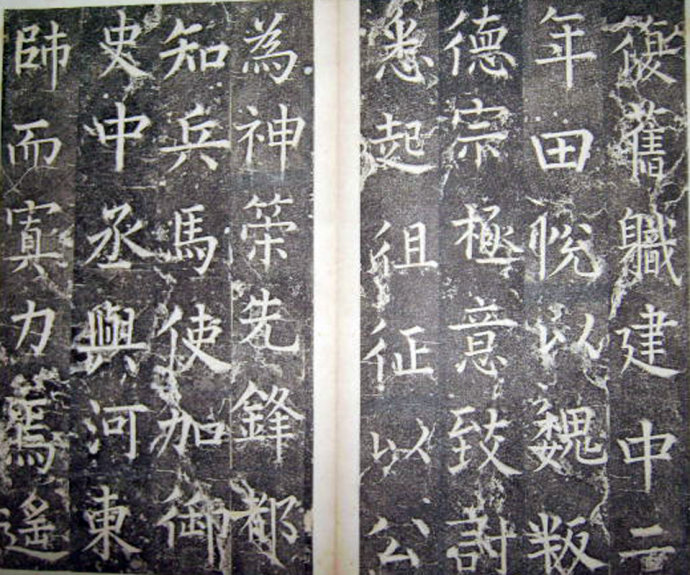 復舊職建中二
年田悅以魏叛
德宗極意致討
悉起徂征以公
為神策先鋒都
知兵馬使加御
史中丞與河東
師而寘力焉遙